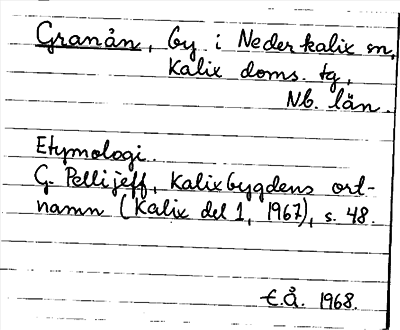 Granån, by i Nederkalix sn,
Kalix doms. tg,
Nb. län.
Etymologi.
G. Pellijeff, Kalixbygdens ort-
namn (Kalix del 1, 1967), s. 48.
E.Å. 1968.